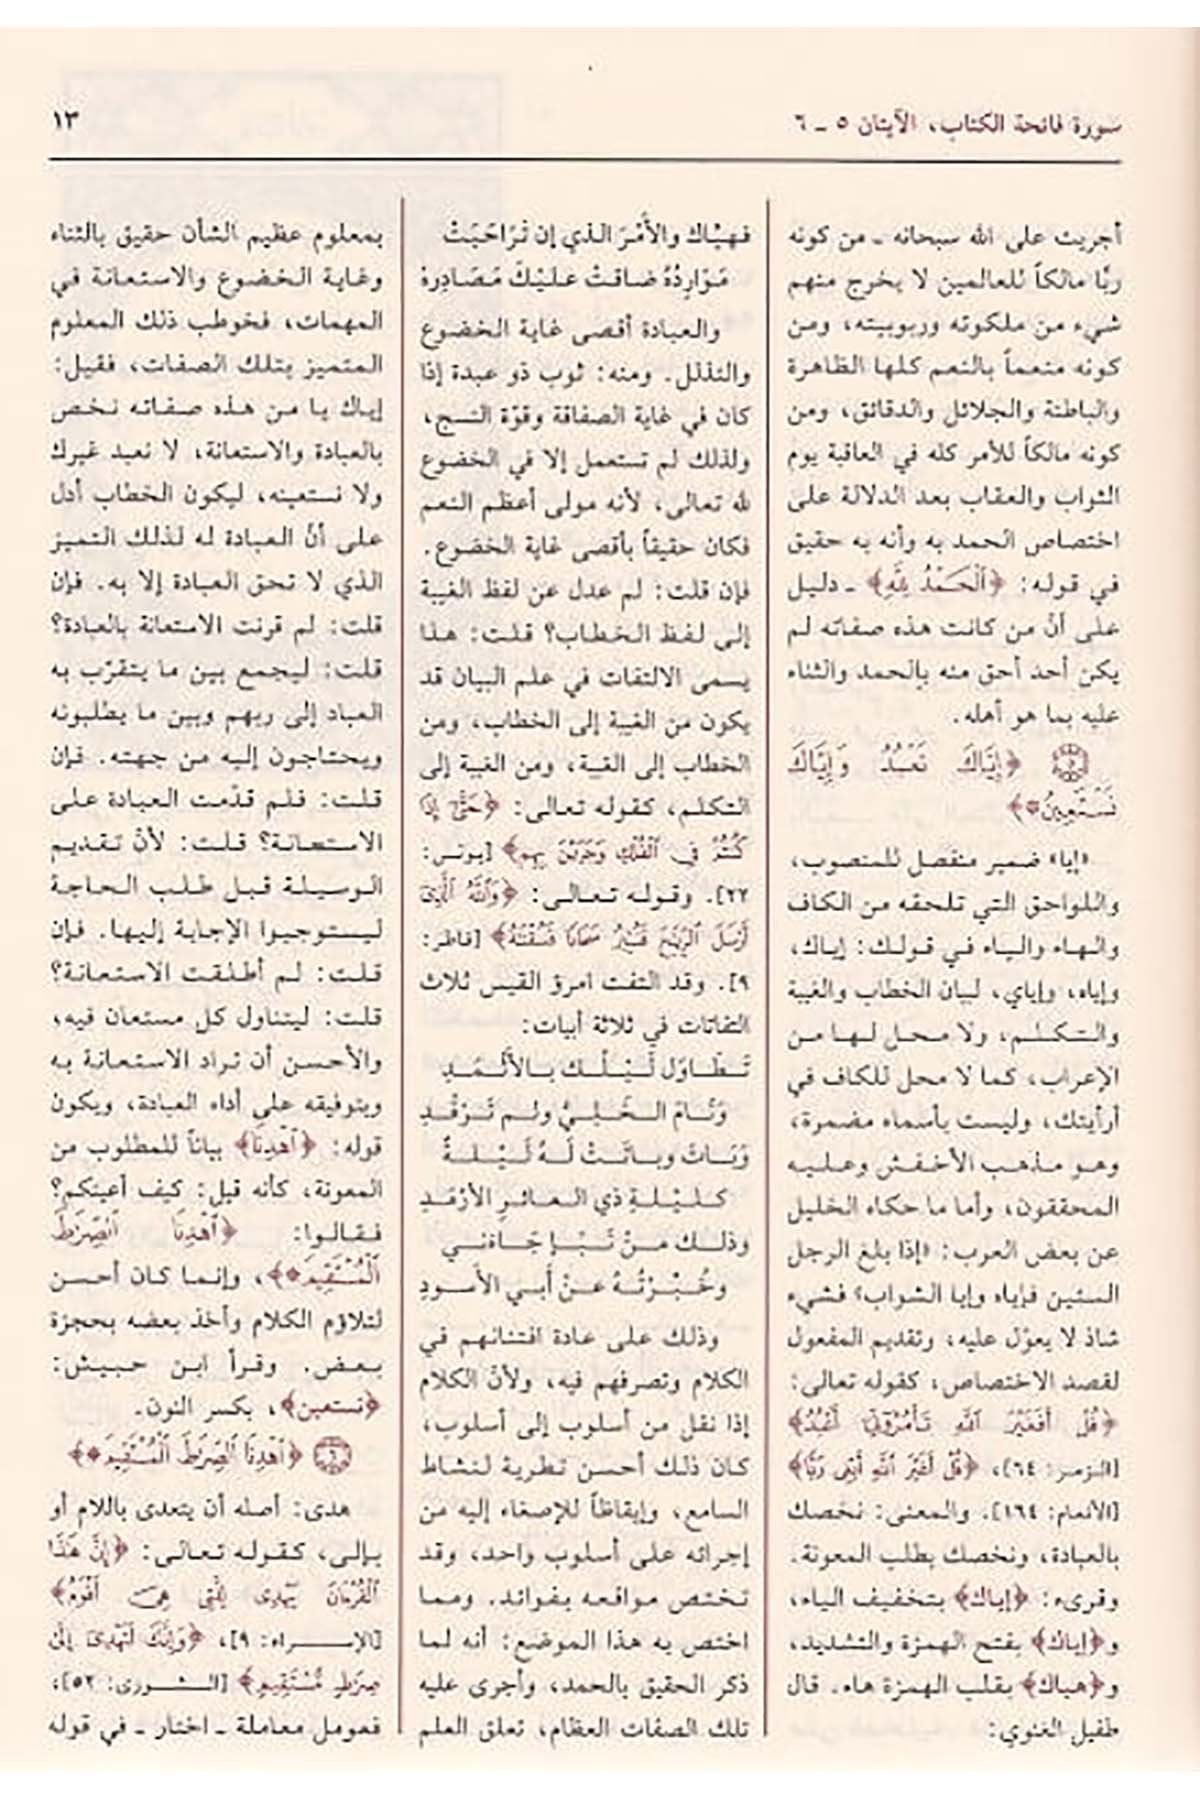 سورة فاتحة الكتاب، الآيتان ٥ ـ ٦
١٣
أجريت على الله سبحانه ـ من كونه
ربًّا مالكاً للعالمين لا يخرج منهم
شيء من ملكوته وربوبيته، ومن
كونه منعماً بالنعم كلها الظاهرة
والباطنة والجلائل والدقائق، ومن
كونه مالكاً للأمر كله في العاقبة يوم
الثواب والعقاب بعد الدلالة على
اختصاص الحمد به وأنه به حقيق
في قوله: ﴿اَلْحَمْدُ لِلَّهِ﴾ ـ دليل
على أنّ من كانت هذه صفاته لم
يكن أحد أحق منه بالحمد والثناء
عليه بما هو أهله.
٥ ﴿إِيَّاكَ نَعْبُدُ وَإِيَّاكَ
نَسْتَعِينُ*﴾
«إيا» ضمير منفصل للمنصوب،
واللواحق التي تلحقه من الكاف
والهاء والياء في قولك: إياك،
وإياه، وإياي، لبيان الخطاب والغيبة
والتكلم، ولا محل لها من
الإعراب، كما لا محل للكاف في
أرأيتك، وليست بأسماء مضمرة،
وهو مذهب الأخفش وعليه
المحققون، وأما ما حكاه الخليل
عن بعض العرب: «إذا بلغ الرجل
الستين فإياه وإيا الشواب» فشيء
شاذ لا يعوّل عليه، وتقديم المفعول
لقصد الاختصاص، كقوله تعالى:
﴿قُلْ أَفَغَيْرَ اللَّهِ تَأْمُرُوٓنِّيٓ أَعْبُدُ﴾
[الزمر: ٦٤]، ﴿قُلْ أَغَيْرَ اللَّهِ أَبْغِى رَبًّا﴾
[الأنعام: ١٦٤]. والمعنى: نخصك
بالعبادة، ونخصك بطلب المعونة.
وقرىء: ﴿إياك﴾ بتخفيف الياء،
و﴿إياك﴾ بفتح الهمزة والتشديد،
و﴿هياك﴾ بقلب الهمزة هاء. قال
طفيل الغنوي:
فهيَّاك والأمْرَ الذي إن تَرَاحَبَتْ
مَوَارِدُهُ ضاقتْ عليْكَ مَصَادِره
والعبادة أقصى غاية الخضوع
والتذلل. ومنه: ثوب ذو عبدة إذا
كان في غاية الصفاقة وقوّة النسج،
ولذلك لم تستعمل إلا في الخضوع
لله تعالى، لأنه مولى أعظم النعم
فكان حقيقاً بأقصى غاية الخضوع.
فإن قلت: لم عدل عن لفظ الغيبة
إلى لفظ الخطاب؟ قلت: هذا
يسمى الالتفات في علم البيان قد
يكون من الغيبة إلى الخطاب، ومن
الخطاب إلى الغيبة، ومن الغيبة إلى
التكلم، كقوله تعالى: ﴿حَتَّىٰٓ إِذَا
كُنتُمْ فِى الْفُلْكِ وَجَرَيْنَ بِهِم﴾ [يونس:
٢٢]. وقوله تعالى: ﴿وَاللَّهُ الَّذِىٓ
أَرْسَلَ الرِّيَٰحَ فَتُثِيرُ سَحَابًا فَسُقْنَٰهُ﴾ [فاطر:
٩]. وقد التفت امرؤ القيس ثلاث
التفاتات في ثلاثة أبيات:
تَطَاوَل لَيْلُك بالأَثْمَدِ
وَنَامَ الخَلِيُّ ولم تَرْقُدِ
وَبَاتَ وباتَتْ لَهُ لَيْلَةٌ
كليْلةِ ذي العائرِ الأرْمَدِ
وذلك مَنْ نَبَإٍ جَاءَني
وخُبِّرْتُهُ عنْ أبي الأسودِ
وذلك على عادة افتنانهم في
الكلام وتصرفهم فيه، ولأنّ الكلام
إذا نقل من أسلوب إلى أسلوب،
كان ذلك أحسن تطرية لنشاط
السامع، وإيقاظاً للإصغاء إليه من
إجرائه على أسلوب واحد، وقد
تختص مواقعه بفوائد. ومما
اختص به هذا الموضع: أنه لما
ذكر الحقيق بالحمد، وأجرى عليه
تلك الصفات العظام، تعلق العلم
بمعلوم عظيم الشأن حقيق بالثناء
وغاية الخضوع والاستعانة في
المهمات، فخوطب ذلك المعلوم
المتميز بتلك الصفات، فقيل:
إياك يا من هذه صفاته نخص
بالعبادة والاستعانة، لا نعبد غيرك
ولا نستعينه، ليكون الخطاب أدل
على أنّ العبادة له لذلك التميز
الذي لا تحق العبادة إلا به. فإن
قلت: لم قرنت الاستعانة بالعبادة؟
قلت: ليجمع بين ما يتقرّب به
العباد إلى ربهم وبين ما يطلبونه
ويحتاجون إليه من جهته. فإن
قلت: فلم قدّمت العبادة على
الاستعانة؟ قلت: لأنّ تقديم
الوسيلة قبل طلب الحاجة
ليستوجبوا الإجابة إليها. فإن
قلت: لم أطلقت الاستعانة؟
قلت: ليتناول كل مستعان فيه،
والأحسن أن تراد الاستعانة به
وبتوفيقه على أداء العبادة، ويكون
قوله: ﴿اَهْدِنَا﴾ بياناً للمطلوب من
المعونة، كأنه قيل: كيف أعينكم؟
فقالوا: ﴿اَهْدِنَا الصِّرَٰطَ
الْمُسْتَقِيمَ*﴾، وإنما كان أحسن
لتلاؤم الكلام وأخذ بعضه بحجزة
بعض. وقرأ ابن حبيش:
﴿نستعين﴾، بكسر النون.
٦ ﴿اَهْدِنَا الصِّرَٰطَ الْمُسْتَقِيمَ*﴾
هدى: أصله أن يتعدى باللام أو
بإلى، كقوله تعالى: ﴿إِنَّ هَٰذَا
الْقُرْءَانَ يَهْدِى لِلَّتِى هِىَ أَقْوَمُ﴾
[الإسراء: ٩]، ﴿وَإِنَّكَ لَتَهْدِىٓ إِلَىٰ
صِرَٰطٍ مُّسْتَقِيمٍ﴾ [الشورى: ٥٢]،
فعومل معاملة ـ اختار ـ في قوله